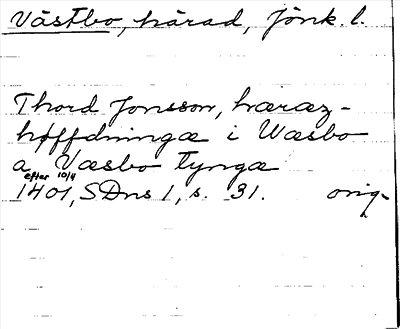 Västbo, härad, Jönk. l.
Thord Jonsson, hæræz-
høffdningæ i Wæsbo
a Væsbo tyngæ
efter 10/4
1401, SDns 1, s. 31. orig.